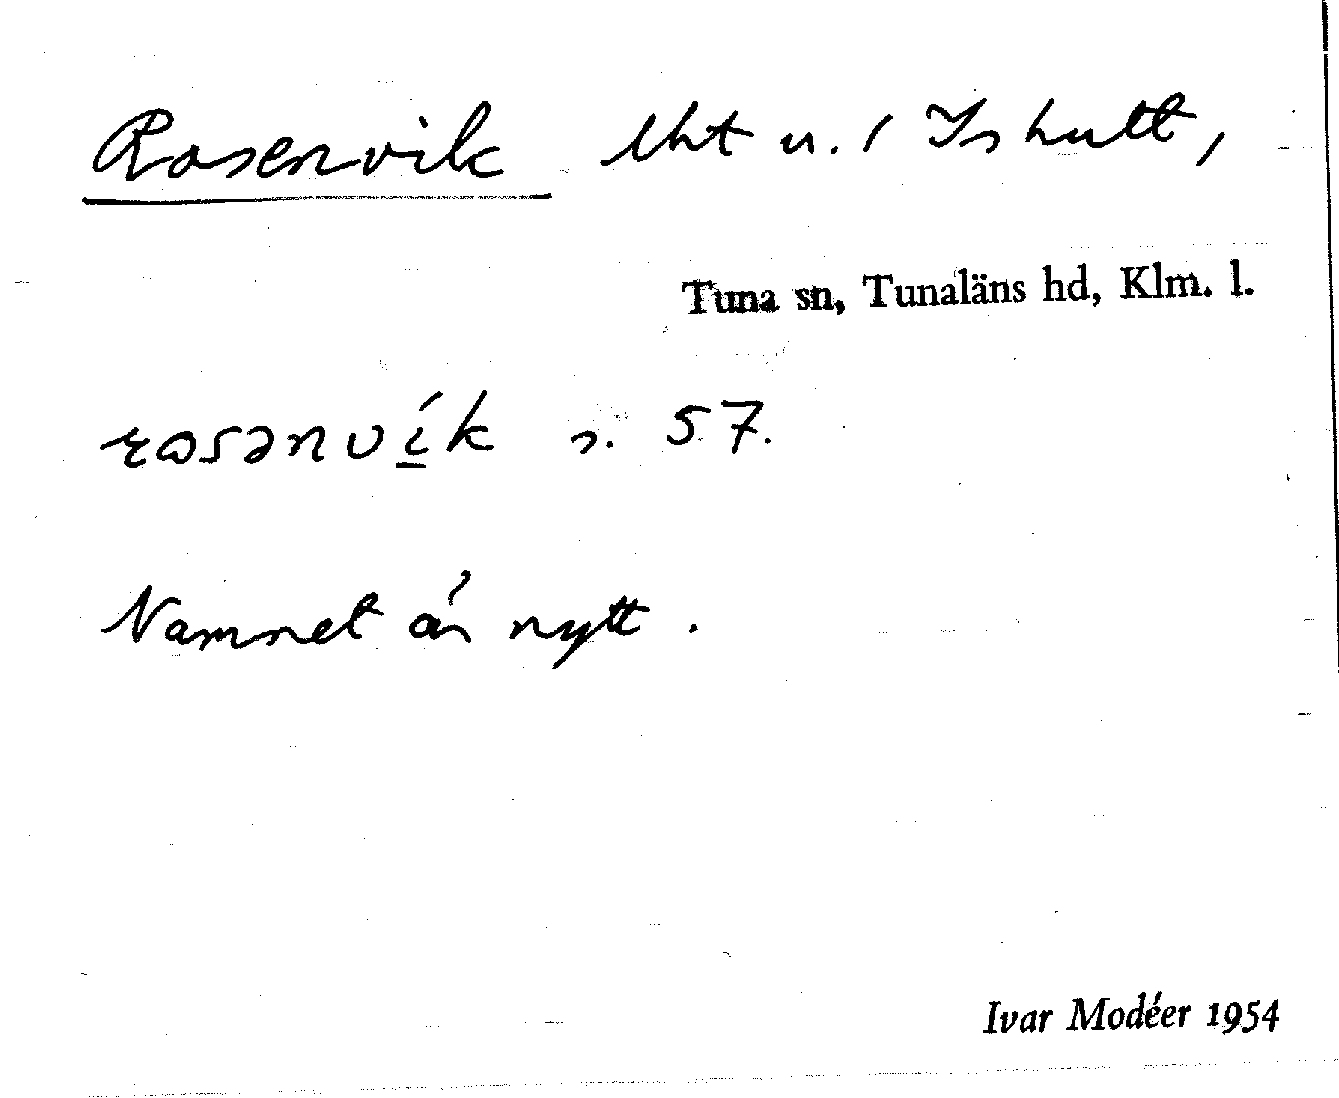 Rosenvik lht u. / Ishult,
Tuna sn, Tunaläns hd, Klm. l.
rosənvík s. 57.
Namnet är nytt.
Ivar Modéer 1954